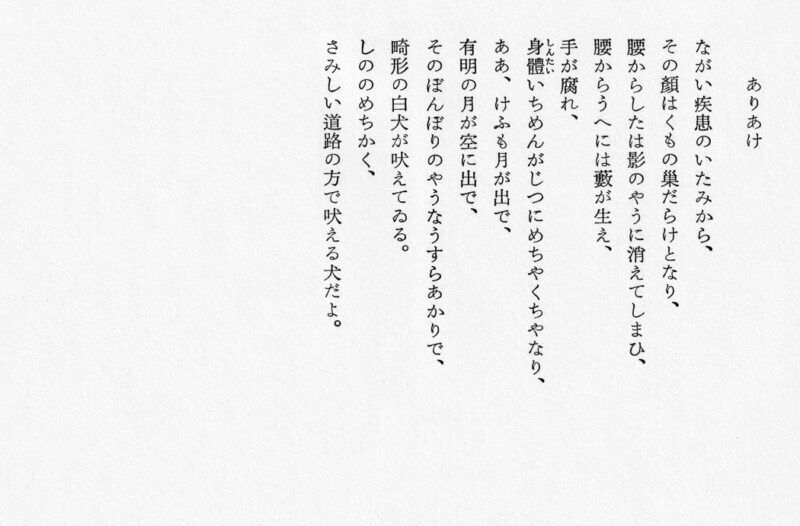 ありあけ
ながい疾患のいたみから、
その顔はくもの巣だらけとなり、
腰からしたは影のやうに消えてしまひ、
腰からうへには藪が生え、
手が腐れ、
身體いちめんがじつにめちやくちやなり、
しんたい
ああ、けふも月が出で、
有明の月が空に出で、
そのぼんぼりのやうなうすらあかりで、
畸形の白犬が吠えてゐる。
しののめちかく、
さみしい道路の方で吠える犬だよ。